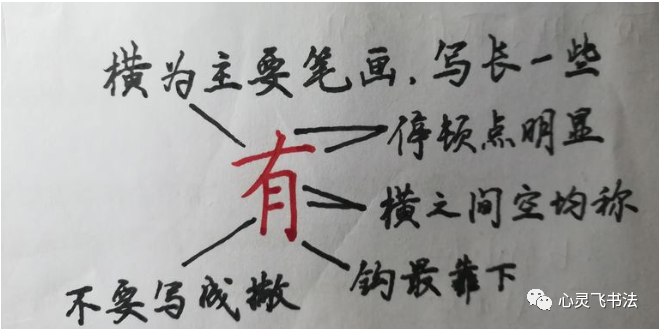 横为主要笔画,写长一些
停顿点明显
有
横之间空均称
不要写成撇
钩最靠下
心灵飞书法